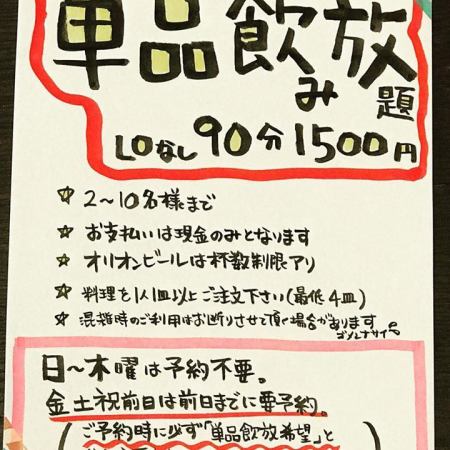 単品飲み放題
LOなし 90分1500円
☆ 2〜10名様まで
☆ お支払いは現金のみとなります
☆ オリオンビールは杯数制限アリ
☆ 料理を1人1皿以上ご注文下さい(最低4皿)
☆ 混雑時のご利用はお断りさせて頂く場合があります
ゴメンナサイ
日〜木曜は予約不要。
金土祝前日は前日までに要予約。
(ご予約時に必ず「単品飲放希望」と